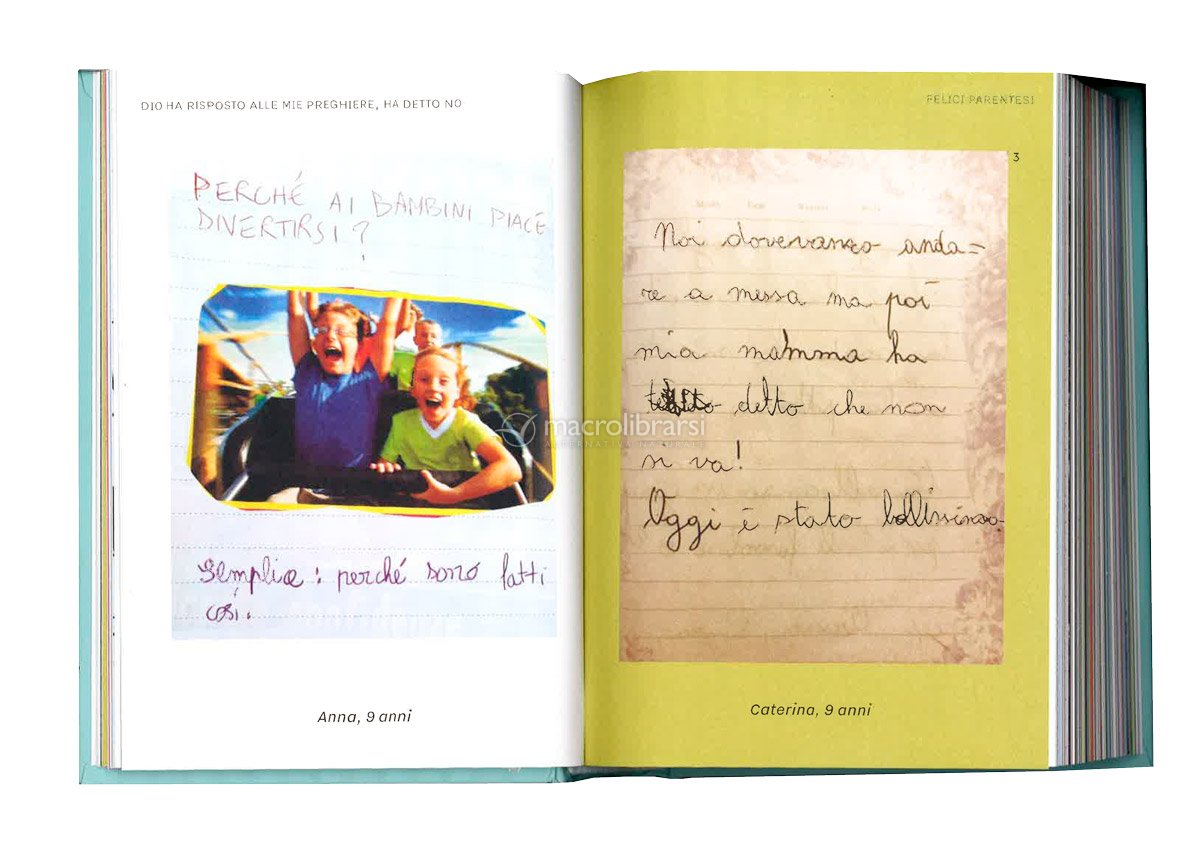 DIO HA RISPOSTO ALLE MIE PREGHIERE, HA DETTO NO
PERCHÉ AI BAMBINI PIACE
DIVERTIRSI?
Semplice: perché sono fatti
così.
Anna, 9 anni
FELICI PARENTESI
3
Noi dovevamo anda=
re a messa ma poi
mia mamma ha
detto che non
si va!
Oggi è stato bellissimo.
Caterina, 9 anni
macrolibrarsi
ALTERNATIVA NATURALE